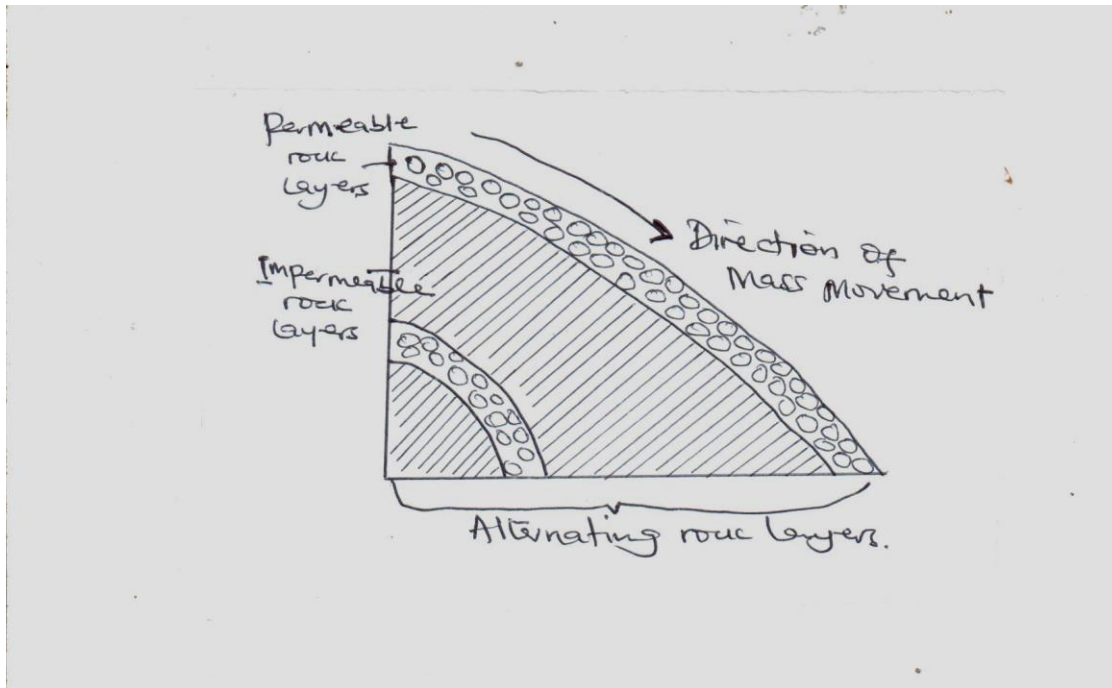 Permeable
rock
layers
Impermeable
rock
layers
Direction of
Mass Movement
Alternating rock layers.